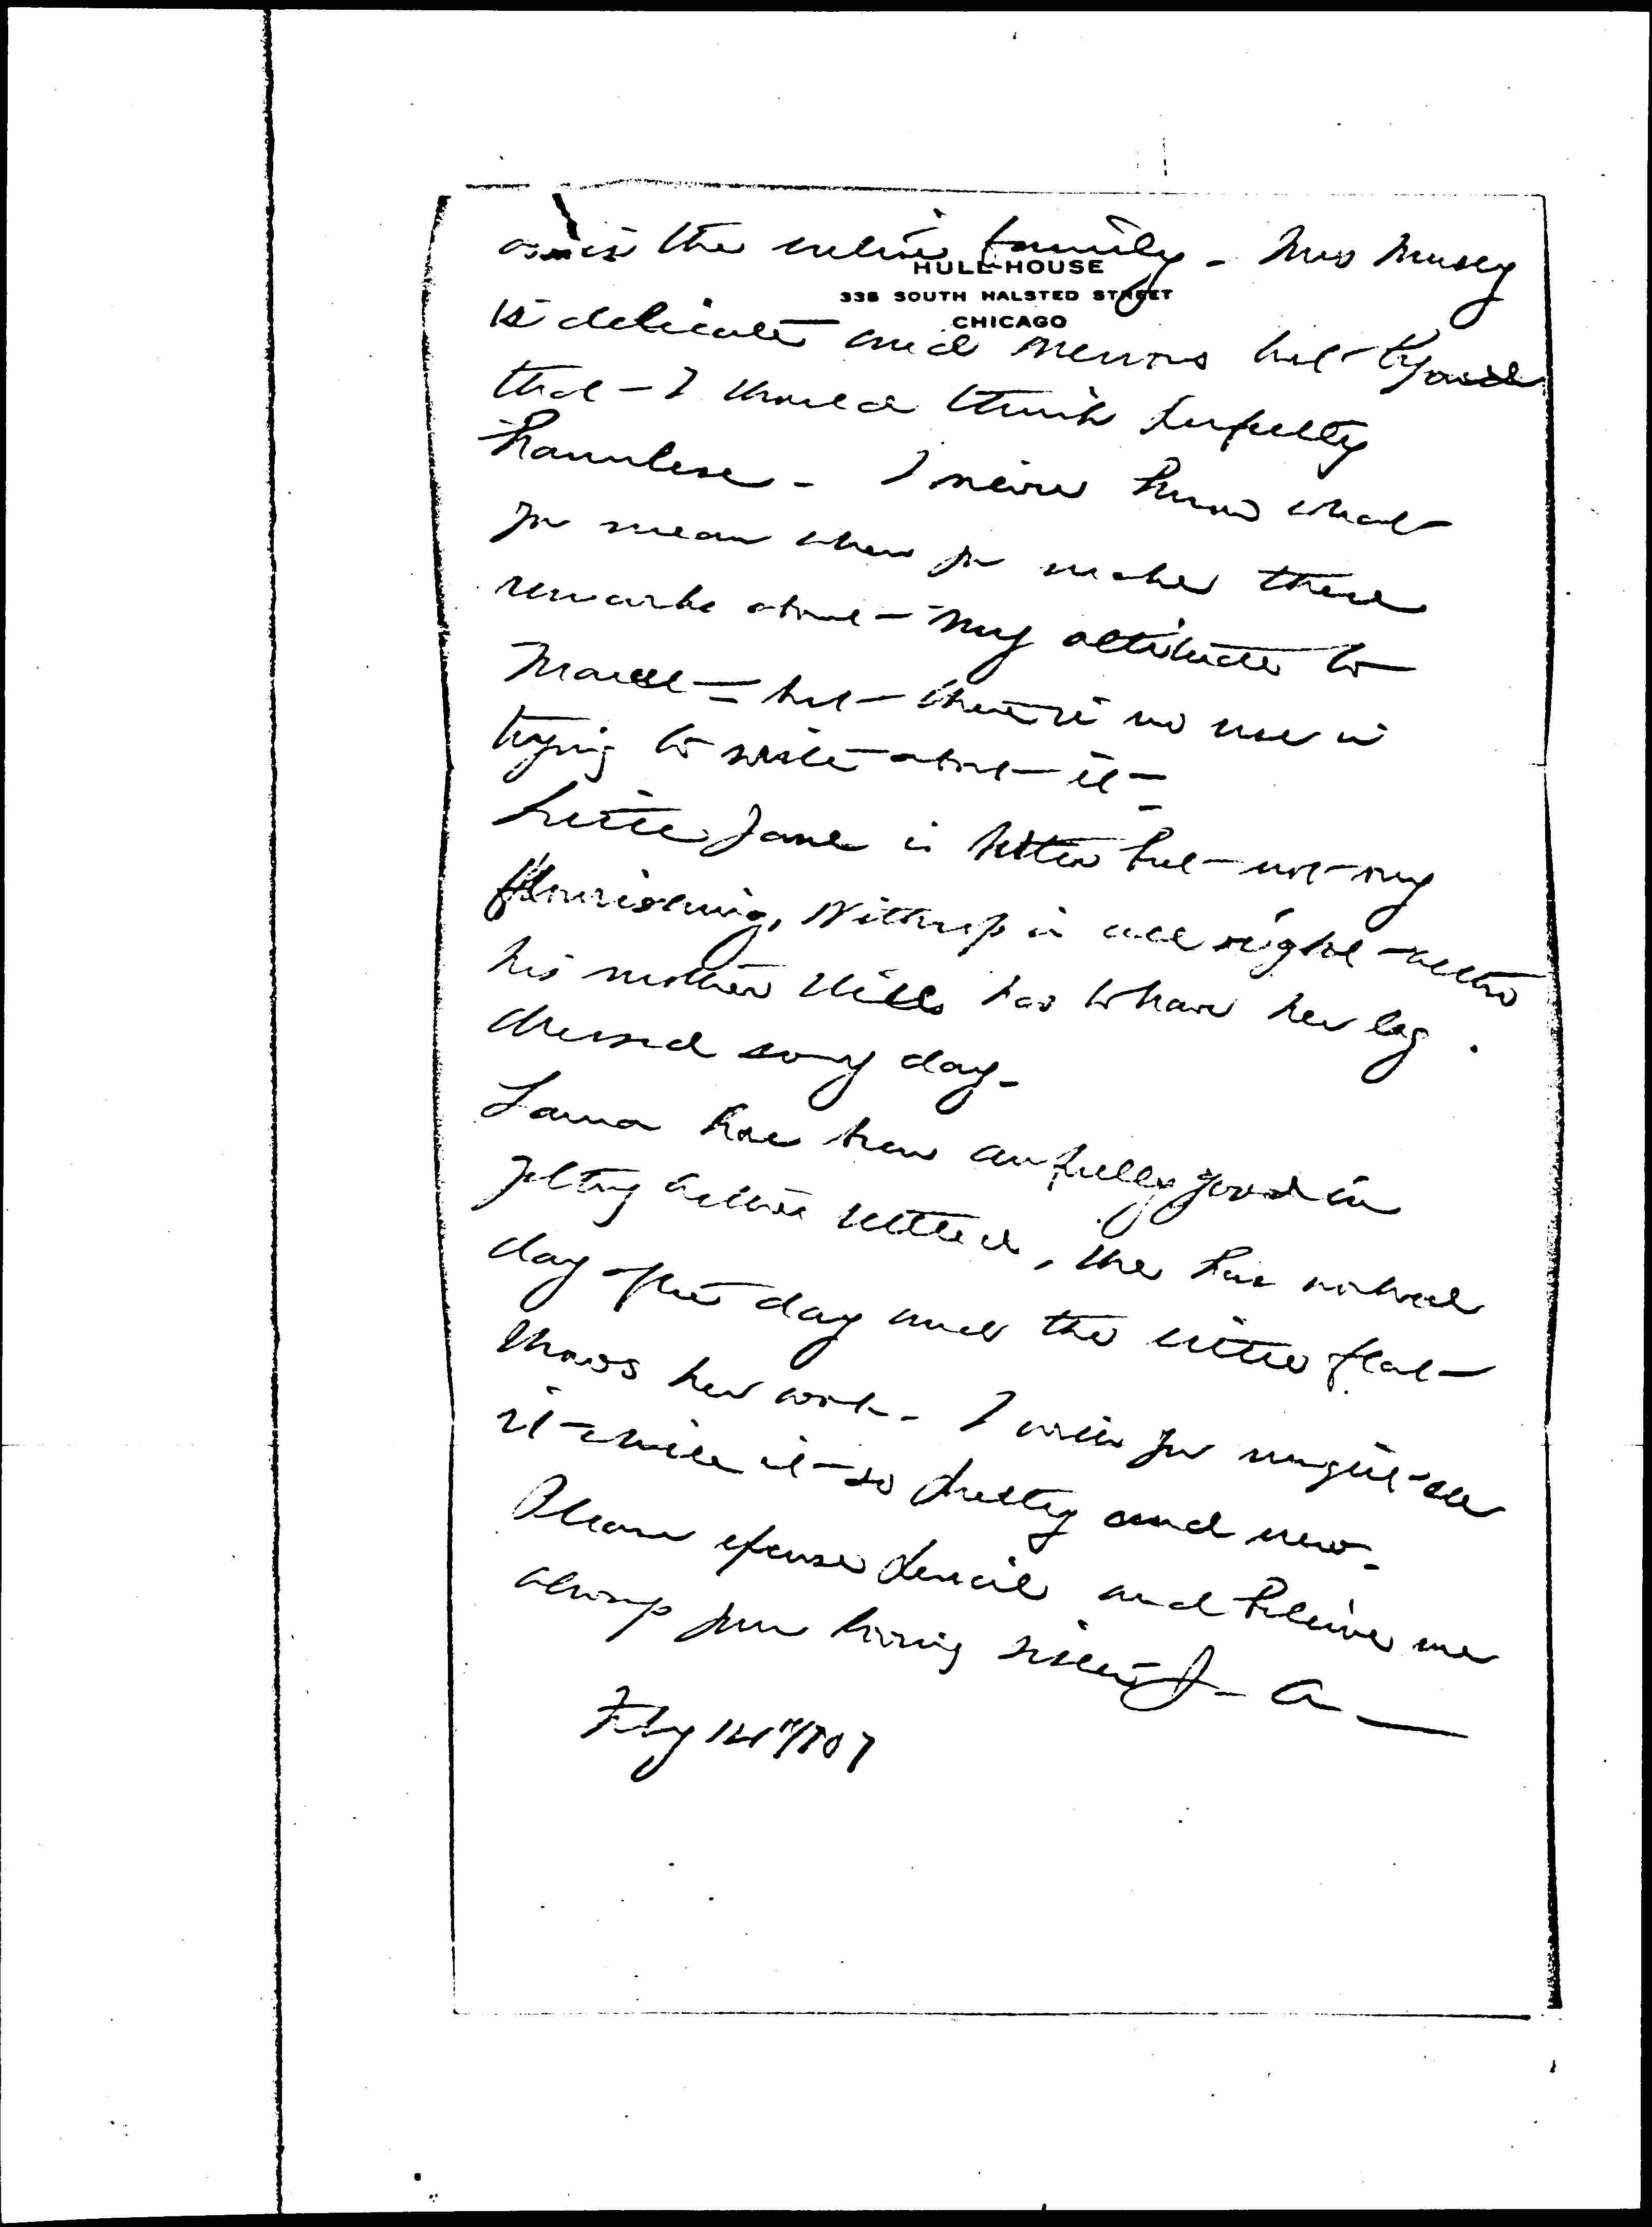 as is the entire family - Mrs
HULL-HOUSE
335 SOUTH HALSTED STREET
CHICAGO
is delicate and nervous but beyond
that - I should think perfectly
harmless - I never know what
you mean when you make these
remarks about - my attitude to
Marcet - but - there is no use in
trying to write about - it -
Little Jane is better but - not - very
flourishing, is all right - altho
his mother still has to have her leg
dressed every day -
Laura has been awfully good in
getting settled, she has worked
day after day and the little flat -
shows her work - I wish you might - see
it - while it - is so pretty and new -
Please excuse pencil and believe me
always your loving sister J - A -
Feby 1907